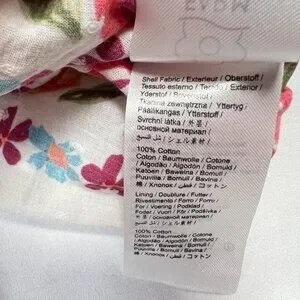 Shell Fabric / Exterieur / Oberstoff /
Tessuto esterno / Tecido / Exterior /
Yderstof / Bovenstof / Tyg /
Tkanina zewnętrzna / Yttertyg /
Päällikangas / Ytterstoff /
Svrchní látka / 外层 /
основной материал /
/ シェル素材 /
100% Cotton
Coton / Baumwolle / Cotone
/ Algodão / Algodón / Bomuld /
Katoen / Bawełna / Bomull /
Puuvilla / Bomull / Bavlna /
棉 / Хлопок / قطن / コットン
Lining / Doublure / Futter /
Rivestimento / Forro / Forro /
For / Voering / Podklad /
Foder / Vuori / Fôr / Podšívka
100% Cotton
Coton / Baumwolle / Cotone
/ Algodão / Algodón / Bomuld /
Katoen / Bawełna / Bomull /
Puuvilla / Bomull / Bavlna /
棉 / Хлопок / قطن / コットン